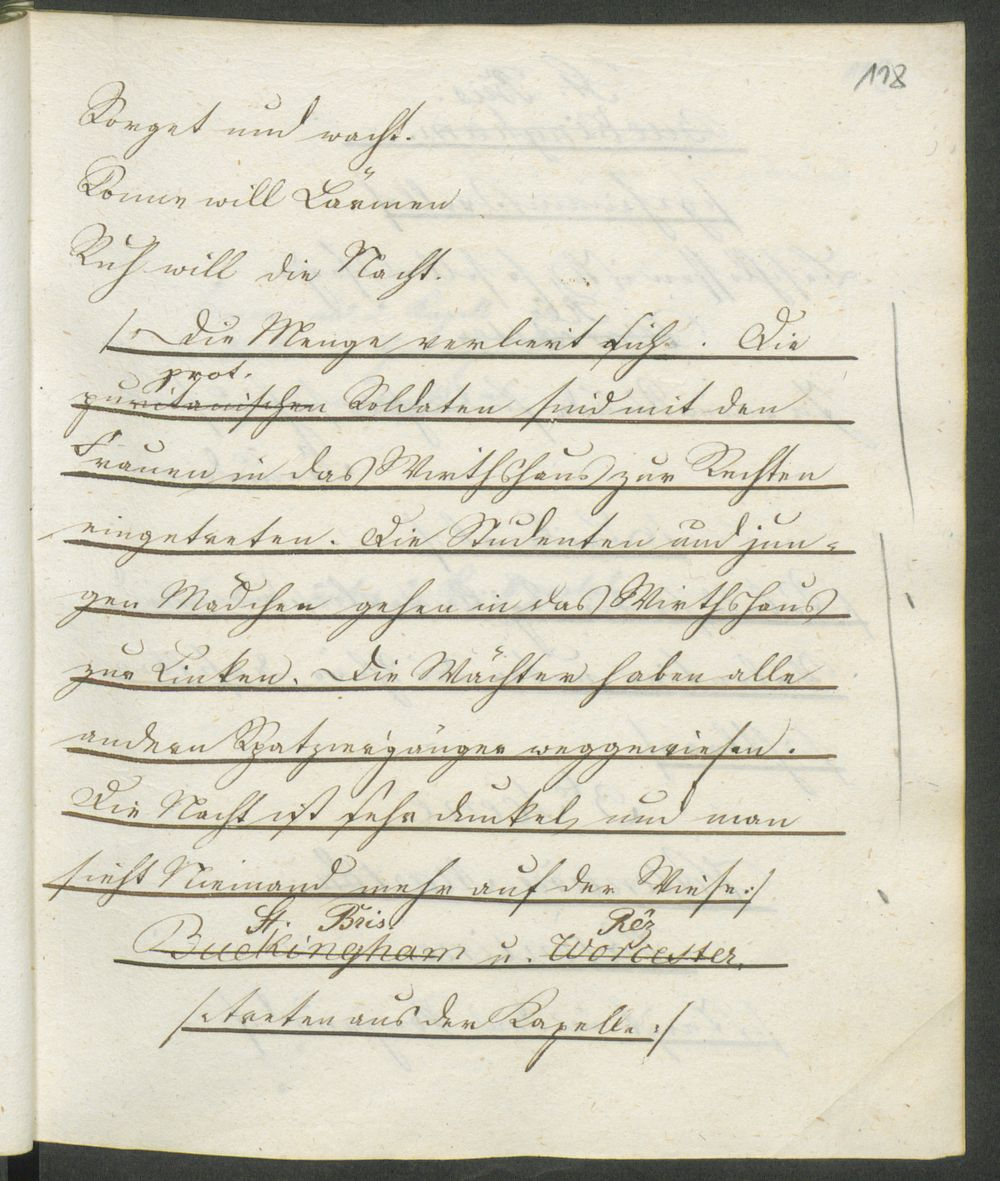 118
Sorget und wacht.
Sonne will Lärmen
Ruh will die Nacht.
/: Die Menge verliert sich. Die
prot.
puritanischen Soldaten sind mit den
Frauen in das Wirthshaus zur Rechten
eingetreten. Die Studenten und jun-
gen Mädchen gehen in das Wirthshaus
zur Linken. Die Wächter haben alle
andern Spatziergänger weggewiesen.
Die Nacht ist sehr dunkel, und man
sieht Niemand mehr auf der Wiese :/
St. Bris. Réz
Buckingham u. Worcester.
/: treten aus der Kapelle :/